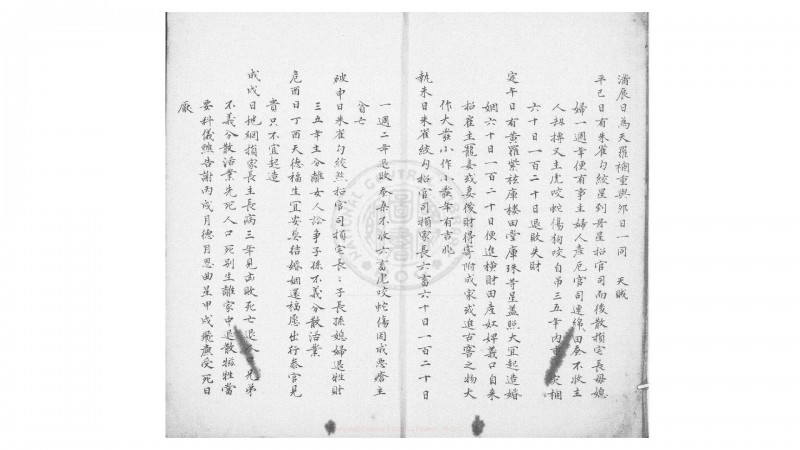 滿辰日為天羅網重與卯日一同　天賊
平巳日有朱雀勾絞星到冐星招官司而後散損宅長母媳
婦一週年便有事主婦人產厄官司連綿田蚕不收主
人劫摶又主虎咬蛇傷狗咬自吊三五年内
六十日一百二十日退敗失財
定午日有黄羅紫檀庫樓田塋庫珠等星盖照大宜起造婚
姻六十日一百二十日便進橫財田產奴婢義口自來
招雇主寵妾或妾僕財得寄附成家或進古窖之物大
作大發小作小發年有吉兆
執未日朱雀絞勾招官司損家長六畜六十日一百二十日
一週二年退敗蚕桑不收六畜虎咬蛇傷困成惡瘡主
貧亡
破申日朱雀勾絞照招官司損宅長長子長孫媳婦退牲財
三五年主分離女人訟事子孫不義分散活業
危酉日丁酉天德福生宜安塟結婚姻還福愿出行叅官見
貴只不宜起造
成戍日地網損家長主長病三年見击敗死亡退兄弟
不義分散活業先死人口死别生離家中退散犧牲當
要科儀醮告謝丙戍月德月恩曲星甲戍飛廉受死日
厭